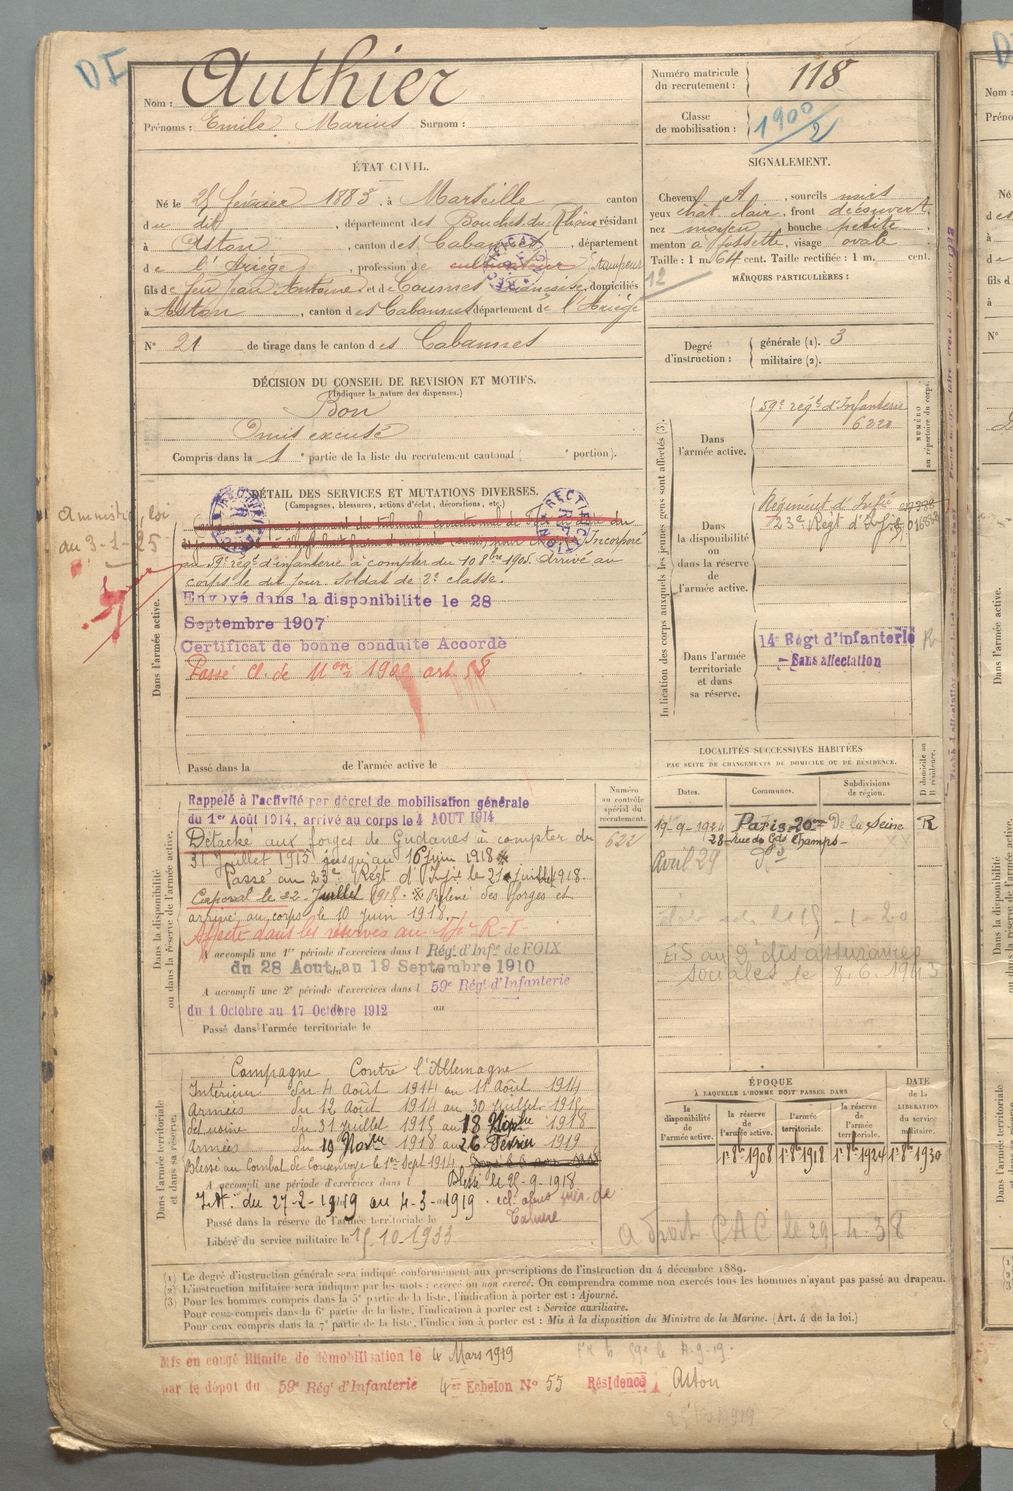 DF
Nom : Authier
Prénoms : Emile Marius Surnom :
Numéro matricule du recrutement : 118
Classe de mobilisation : 1900/2
ÉTAT CIVIL.
Né le 25 février 1883, à Marseille canton
du dit, département des Bouches du Rhône résidant
à Aston, canton des Cabannes, département
de l'Ariège, profession de cultivateur Estampeur
fils de feu Jean Antoine et de Coumes Française, domiciliés
à Aston, canton des Cabannes département de l'Ariège
N° 21 de tirage dans le canton des Cabannes
SIGNALEMENT.
Cheveux et, sourcils noirs
yeux chât. clair, front découvert,
nez moyen, bouche petite
menton à fossette, visage ovale
Taille : 1 m. 64 cent. Taille rectifiée : 1 m. cent.
12
MARQUES PARTICULIÈRES :
Degré d'instruction : générale (1). 3
militaire (2).
DÉCISION DU CONSEIL DE REVISION ET MOTIFS.
(Indiquer la nature des dispenses.)
Bon
Omis excusé
Compris dans la 1e partie de la liste du recrutement cantonal ( e portion).
DÉTAIL DES SERVICES ET MUTATIONS DIVERSES.
(Campagnes, blessures, actions d'éclat, décorations, etc.)
Amnistié, loi
du 3-1-25
Incorporé
au 59e rég. d'infanterie à compter du 10 8bre 1905. Arrivé au
corps le dit jour. Soldat de 2e classe.
Envoyé dans la disponibilite le 28
Septembre 1907
Certificat de bonne conduite Accordé
Passé cl. de Mon 1900 art. 58
Dans l'armée active.
Passé dans la de l'armée active le
Indication des corps auxquels les jeunes gens sont affectés (3).
NUMÉRO au répertoire du corps.
Dans l'armée active.
59e régt d'Infanterie
6220
Dans la disponibilité ou dans la réserve de l'armée active.
Régiment d'Infie
23e Régt d'Inf.
Dans l'armée territoriale et dans sa réserve.
14e Régt d'Infanterie
- Sans affectation
LOCALITÉS SUCCESSIVES HABITÉES
PAR SUITE DE CHANGEMENTS DE DOMICILE OU DE RÉSIDENCE.
D domicile ou R résidence.
Dates. Communes. Subdivisions de région.
19-9-1924 Paris-20e De la Seine R
28 rue de Gds Champs-
Avril 29 do
ES au 9e des assurances
sociales le 8.6.1943
Numéro au contrôle spécial du recrutement.
622
Dans la disponibilité ou dans la réserve de l'armée active.
Rappelé à l'activité par décret de mobilisation générale
du 1er Août 1914, arrivé au corps le 4 AOUT 1914
Détaché aux forges de Gudanes à compter du
31 Juillet 1915 jusqu'au 16 juin 1918 ※
Passé au 23e Régt d'Infie le 21 juillet 1918.
Caporal le 22 Juillet 1918. ※ Relevé des forges et
arrivé au corps le 10 Juin 1918.
Affecté dans les réserves au 14e R.I.
A accompli une 1re période d'exercices dans l Régt d'Infie de FOIX
du 28 Aout au 19 Septembre 1910
A accompli une 2e période d'exercices dans l 59e Régt d'Infanterie
du 1 Octobre au 17 Octobre 1912 au
Passé dans l'armée territoriale le
Dans l'armée territoriale et dans sa réserve.
Campagne Contre l'Allemagne
Intérieur du 4 Août 1914 au 11 Août 1914
Armées du 12 Août 1914 au 30 Juillet 1915
Set usine du 31 Juillet 1915 au 18 Novbre 1918
Armées du 19 Novbre 1918 au 26 Février 1919
Blessé au Combat de Consenvoye le 1er Sept 1914.
Blessé le 25-9-1918
A accompli une période d'exercices dans l
I.A. du 27-2-1919 au 4-3-1919.
Passé dans la réserve de l'armée territoriale le
Libéré du service militaire le 15.10.1933
ÉPOQUE
À LAQUELLE L'HOMME DOIT PASSER DANS
DATE de la LIBÉRATION du service militaire.
la disponibilité de l'armée active. la réserve de l'armée active. l'armée territoriale. la réserve de l'armée territoriale.
1r 8bre 1908 1r 8bre 1918 1r 8bre 1924 1r 8bre 1930
a droit CAC le 29-4-38
(1) Le degré d'instruction générale sera indiqué conformément aux prescriptions de l'instruction du 4 décembre 1889.
(2) L'instruction militaire sera indiquée par les mots : exercé ou non exercé. On comprendra comme non exercés tous les hommes n'ayant pas passé au drapeau.
(3) Pour les hommes compris dans la 5e partie de la liste, l'indication à porter est : Ajourné.
Pour ceux compris dans la 6e partie de la liste, l'indication à porter est : Service auxiliaire.
Pour ceux compris dans la 7e partie de la liste, l'indication à porter est : Mis à la disposition du Ministre de la Marine. (Art. 4 de la loi.)
Mis en congé illimité de démobilisation le 4 Mars 1919
par le dépot du 59e Régt d'Infanterie 4er Echelon N° 55 Résidence Aston